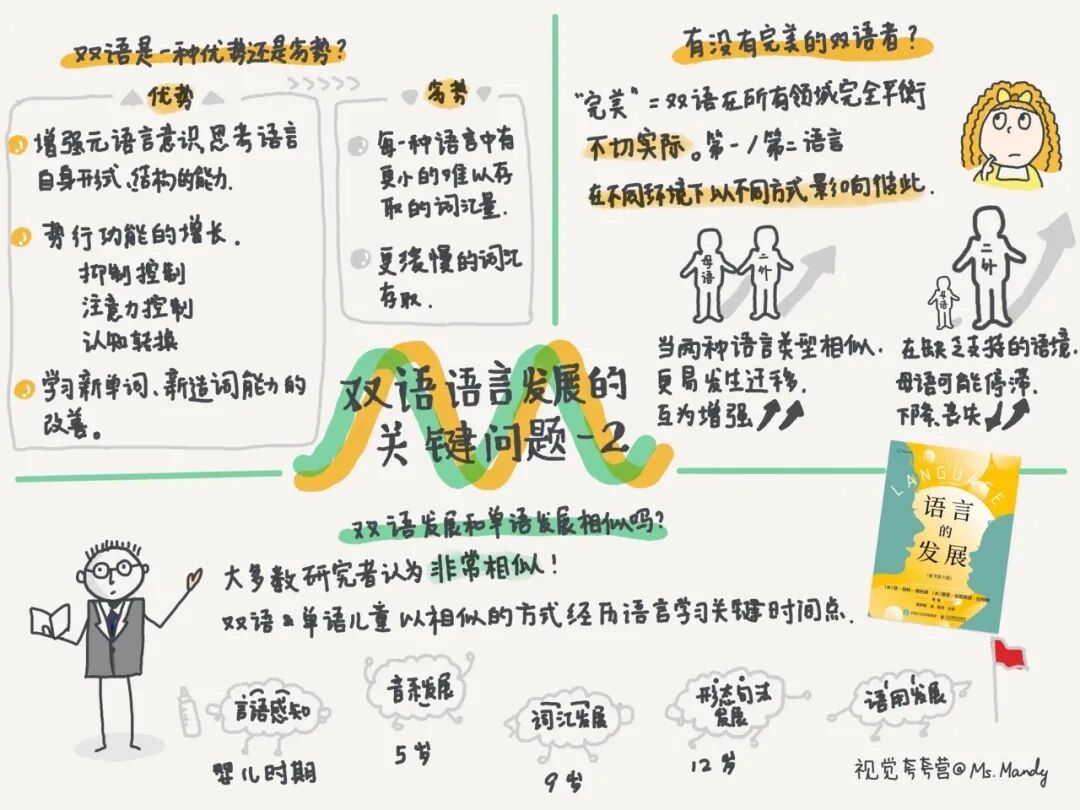 双语是一种优势还是劣势？
优势
增强元语言意识，思考语言
自身形式、结构的能力.
势行功能的增长.
抑制控制
注意力控制
认知转换
学习新单词、新造词能力的
改善。
劣势
每一种语言中有
更小的难以存
取的词汇量.
更缓慢的词汇
存取.
有没有完美的双语者？
“完美”=双语在所有领域完全平衡
不切实际。第一/第二语言
在不同环境下以不同方式影响彼此.
母语
二外
当两种语言类型相似.
更易发生迁移.
互为增强
母语
二外
在缺乏支持的语境.
母语可能停滞.
下降、丧失
双语语言发展的
关键问题-2
LANGUAGE
语言
的
发展
双语发展和单语发展相似吗？
大多数研究者认为非常相似！
双语&单语儿童以相似的方式经历语言学习关键时间点.
言语感知
婴儿时期
音系发展
5岁
词汇发展
9岁
形态句法
发展
12岁
语用发展
视觉夸夸营@Ms.Mandy